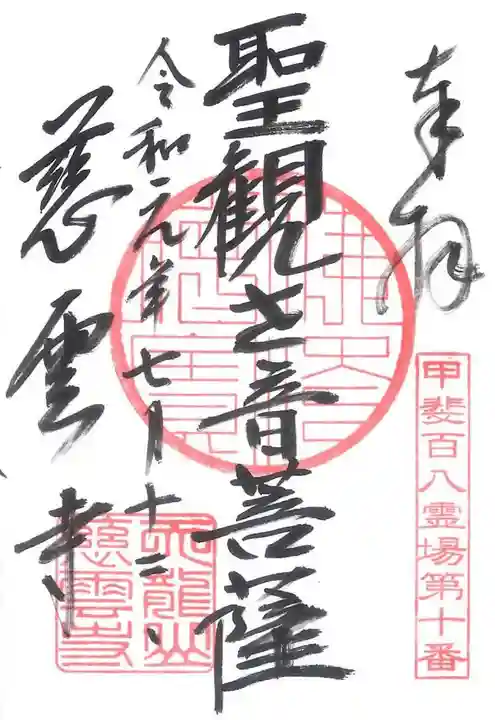 奉拝
甲斐百八霊場第十番
聖観世音菩薩
令和元年七月十三日
慈雲寺
慈雲寺